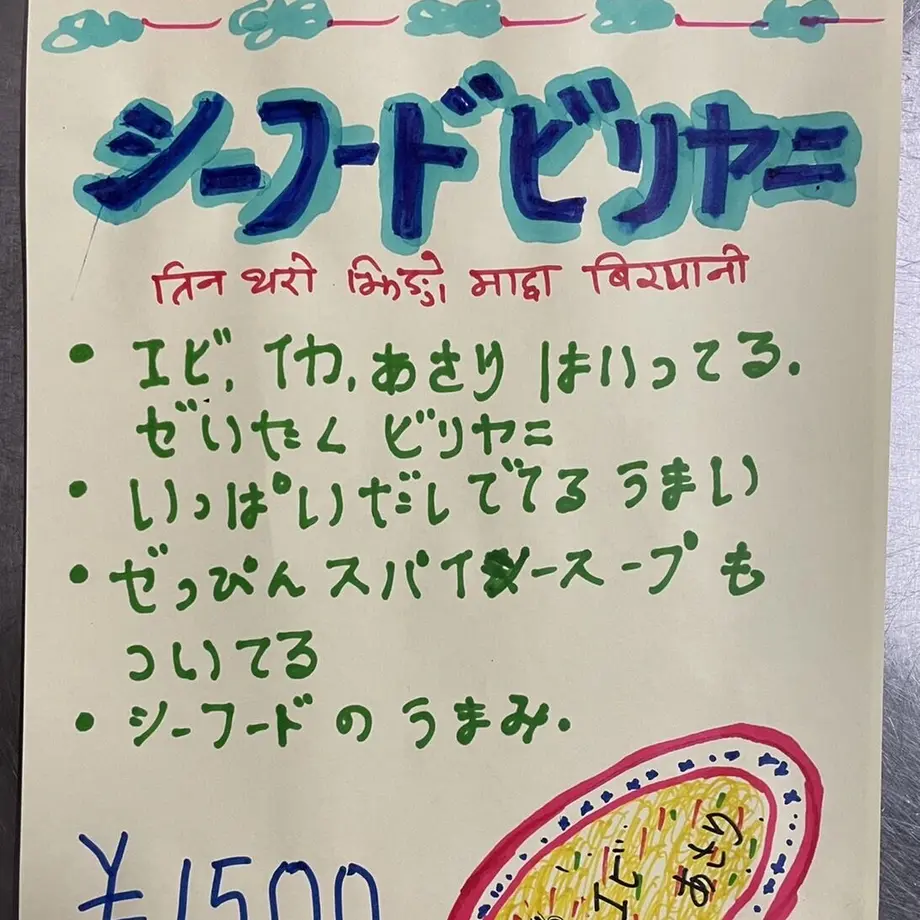 シーフードビリヤニ
तिन थरी झिङ्गे माछा बिरयानी
・エビ, イカ, あさり はいってる.
ぜいたく ビリヤニ
・いっぱいだしでてる うまい
・ぜっぴんスパイシースープ も
ついてる
・シーフード の うまみ.
¥1500
エビ
あさり